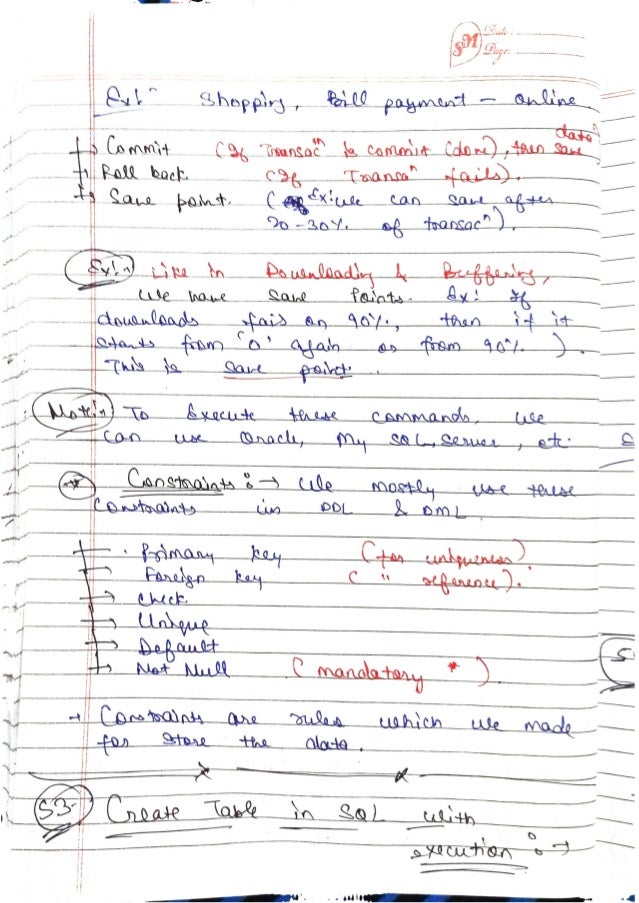 SM Date
Page
Ex:- Shopping, Bill payment - online
data
→ Commit (If Transacⁿ is commit (done), then save
→ Roll back. (If Transaⁿ fails).
→ Save point. (Ex: we can save after
20-30%. of transacⁿ).
Ex:- Like in Downloading & Buffering,
we have save points. Ex: If
downloads fais on 90%, then if it
starts from '0' again or from 90%. ).
This is save point.
Note:- To Execute these commands, we
can use Oracle, My SQL, Server, etc.
* Constraints :→ We mostly use these
Constraints in DDL & DML
→ Primary key (for uniqueness).
→ Foreign key ( " reference).
→ Check.
→ Unique
→ Default
→ Not Null ( mandatory * )
→ Constraints are rules which we made
for store the data.
53- Create Table in SQL with
execution :→